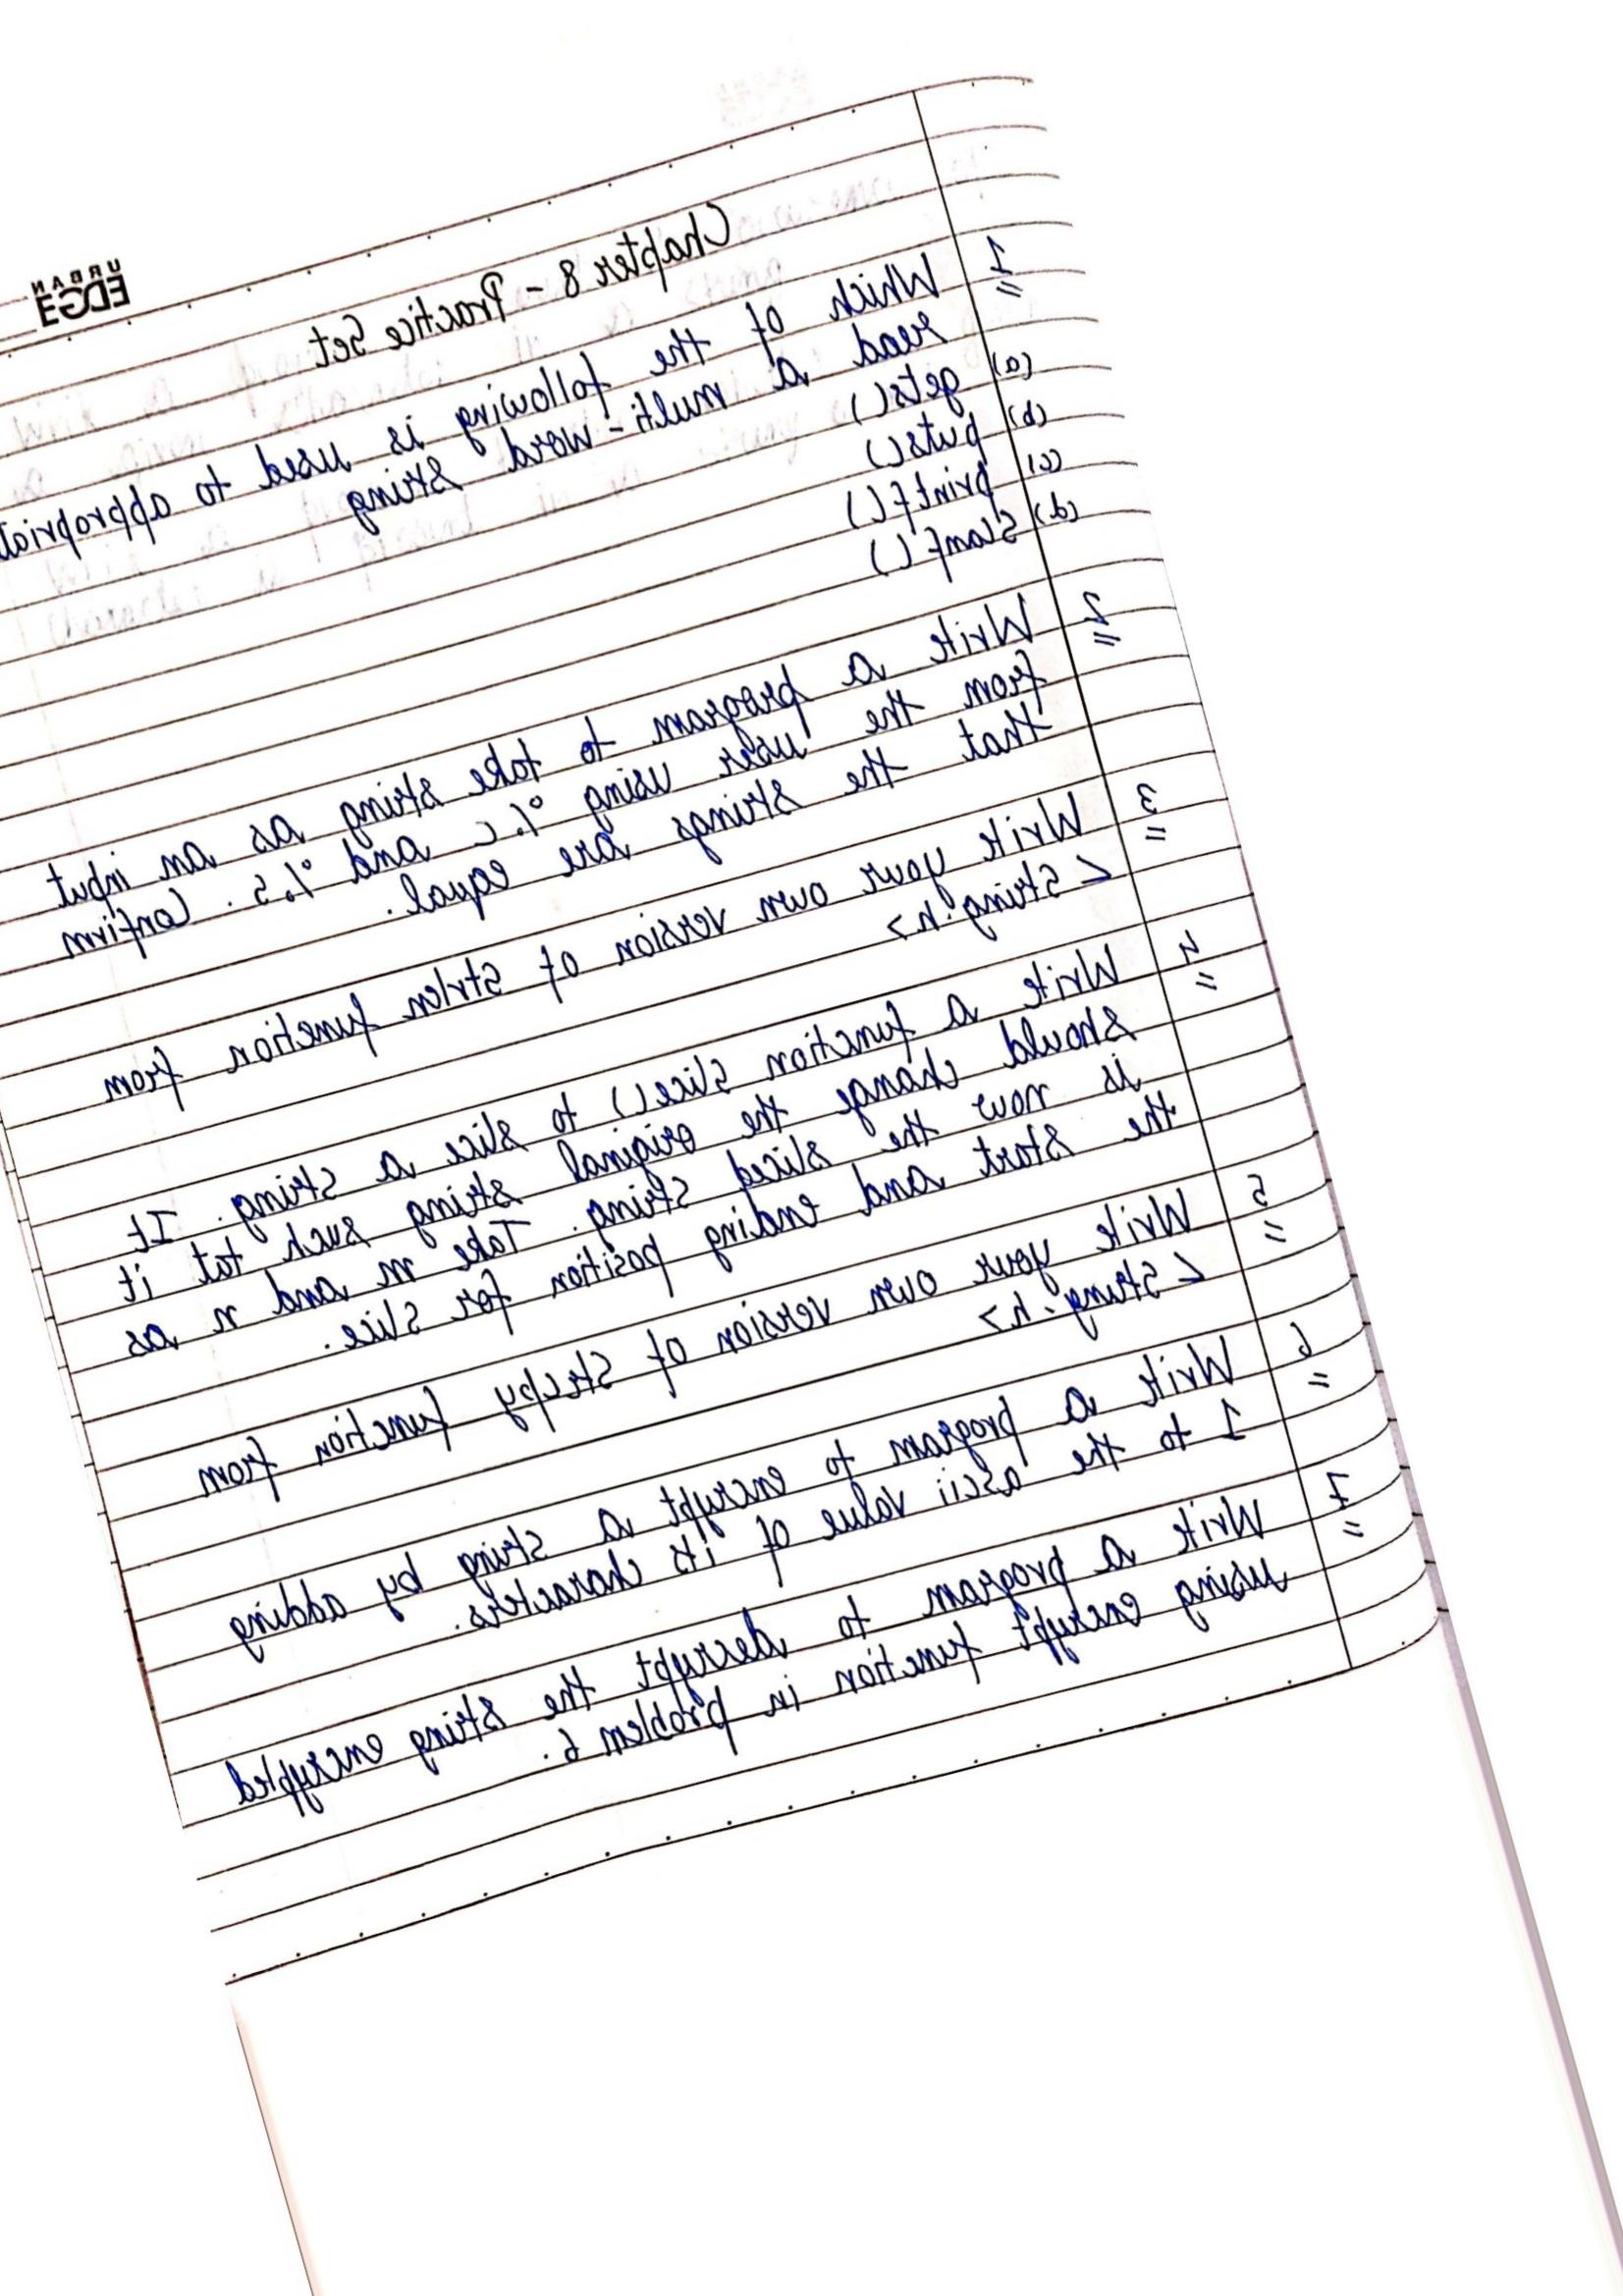 URBAN
EDGE
Chapter 8 - Practice Set
1 Which of the following is used to appropriat
read a multi-word string
(a) gets()
(b) puts()
(c) printf()
(d) Scanf()
2 Write a program to take string as an input
from the user using %c and %s. Confirm
that the strings are equal.
3 Write your own version of strlen function from
<string.h>
4 Write a function slice() to slice a string. It
should change the original string such tat it
is now the sliced string. Take m and n as
the start and ending position for slice.
5 Write your own version of strcpy function from
<string.h>
6 Write a program to encrypt a string by adding
1 to the ascii value of its characters.
7 Write a program to decrypt the string encrypted
using encrypt function in problem 6.